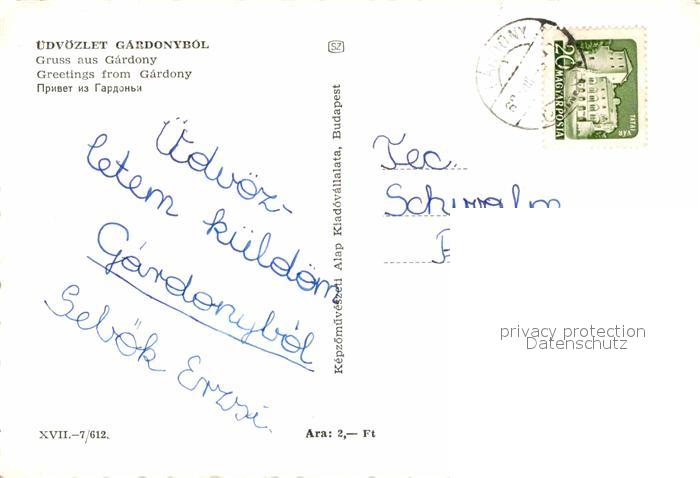 ÜDVÖZLET GÁRDONYBÓL
Gruss aus Gárdony
Greetings from Gárdony
Привет из Гардоньи
SZ
Üdvöz-
letem küldöm
Gárdonyból
Sebők Erzsi.
XVII.—7/612.
Ara: 2,— Ft
Képzőművészeti Alap Kiadóvállalata, Budapest
20
MAGYAR POSTA
TATAI VÁR
Tec.
privacy protection
Datenschutz